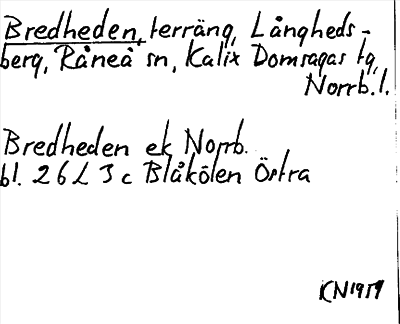 Bredheden, terräng, Långheds-
berg, Råneå sn, Kalix Domsagas tg,
Norrb. l.
Bredheden ek Norrb.
bl. 26 L 3 c Blåkölen Östra
KN 1959